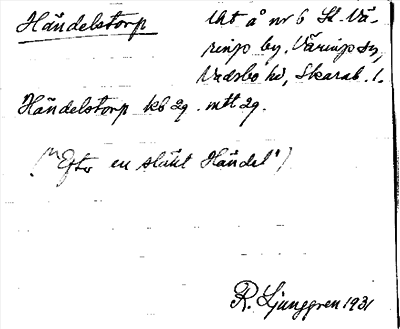 Händelstorp
Utt å nr 6 St. Vä-
ringo by, Väringo sn,
Vadsbo hd, Skarab. l.
Händelstorp kb 29. mtl 29.
("Efter en släkt Händel")
R. Ljunggren 1931